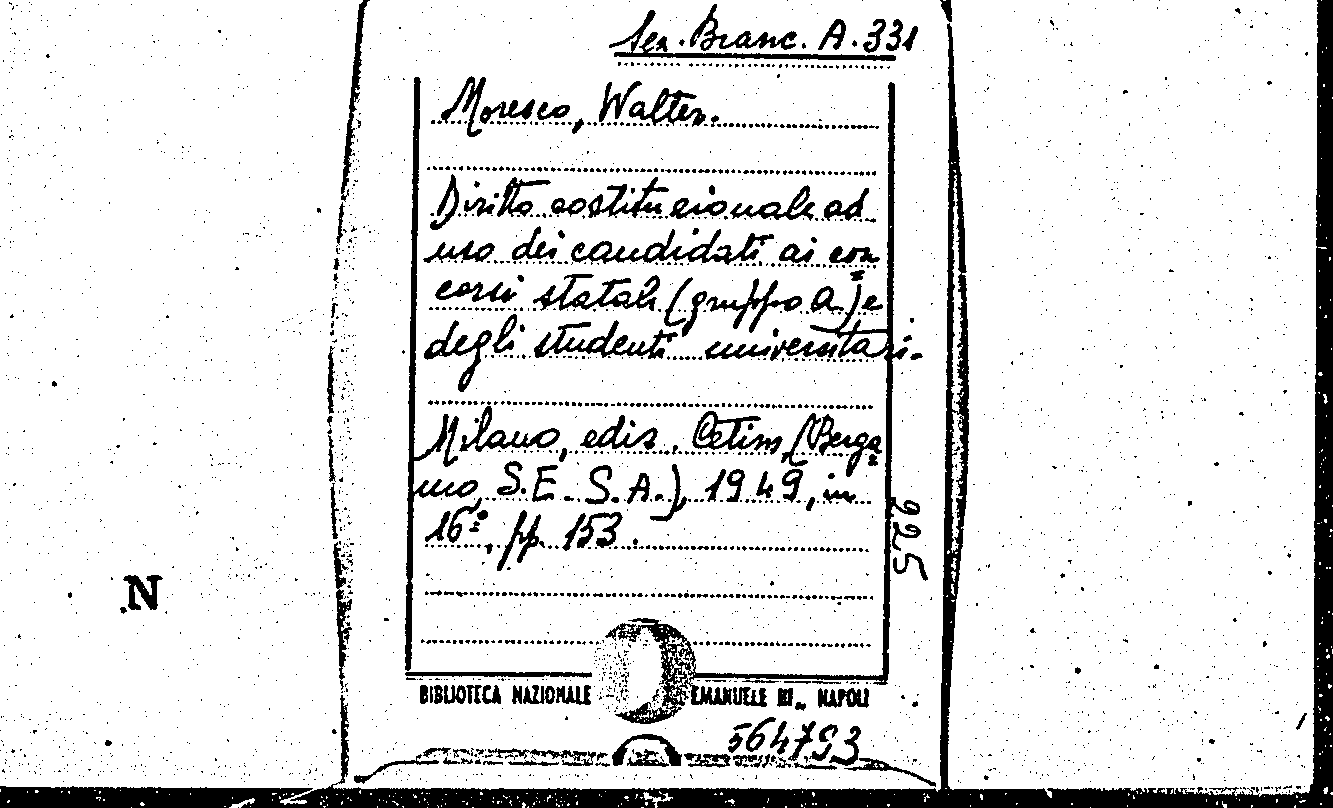 Sez. Branc. A. 331
Moresco, Walter.
Diritto costituzionale ad
uso dei candidati ai con=
corsi statali (gruppo A) e
degli studenti universitari.
Milano, ediz. Cetim, (Berga=
mo, S.E.S.A.), 1949, in
16º, pp. 153.
225
N
BIBLIOTECA NAZIONALE EMANUELE III„ NAPOLI
564793